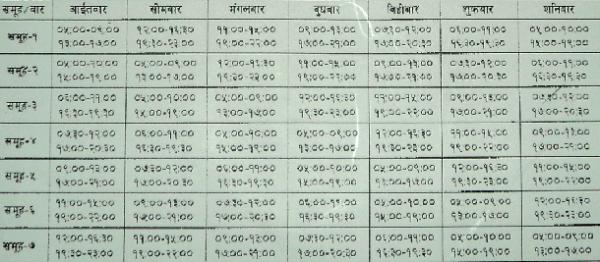 समूह/बार आईतबार सोमबार मंगलबार बुधबार बिहीबार शुक्रबार शनिबार
समूह-१ ०५:००-०९:०० १२:००-१६:३० ११:००-१५:०० ०९:००-१३:०० ०७:३०-१२:०० ०६:००-११:०० ०५:००-१०:००
१३:००-१७:०० १९:३०-२३:०० १९:००-२२:०० १७:००-२१:०० १७:००-२०:३० १६:३०-१९:३० १५:००-१९:००
समूह-२ ०५:००-१०:०० ०५:००-०९:०० १२:००-१६:३० ११:००-१५:०० ०९:००-१३:०० ०७:३०-१२:०० ०६:००-११:००
१५:००-१९:०० १३:००-१७:०० १९:३०-२३:०० १९:००-२२:०० १७:००-२१:०० १७:००-२०:३० १६:३०-१९:३०
समूह-३ ०६:००-११:०० ०५:००-१०:०० ०५:००-०९:०० १२:००-१६:३० ११:००-१५:०० ०९:००-१३:०० ०७:३०-१२:००
१६:३०-१९:३० १५:००-१९:०० १३:००-१७:०० १९:३०-२३:०० १९:००-२२:०० १७:००-२१:०० १७:००-२०:३०
समूह-४ ०७:३०-१२:०० ०६:००-११:०० ०५:००-१०:०० ०५:००-०९:०० १२:००-१६:३० ११:००-१५:०० ०९:००-१३:००
१७:००-२०:३० १६:३०-१९:३० १५:००-१९:०० १३:००-१७:०० १९:३०-२३:०० १९:००-२२:०० १७:००-२१:००
समूह-५ ०९:००-१३:०० ०७:३०-१२:०० ०६:००-११:०० ०५:००-१०:०० ०५:००-०९:०० १२:००-१६:३० ११:००-१५:००
१७:००-२१:०० १७:००-२०:३० १६:३०-१९:३० १५:००-१९:०० १३:००-१७:०० १९:३०-२३:०० १९:००-२२:००
समूह-६ ११:००-१५:०० ०९:००-१३:०० ०७:३०-१२:०० ०६:००-११:०० ०५:००-१०:०० ०५:००-०९:०० १२:००-१६:३०
१९:००-२२:०० १७:००-२१:०० १७:००-२०:३० १६:३०-१९:३० १५:००-१९:०० १३:००-१७:०० १९:३०-२३:००
समूह-७ १२:००-१६:३० ११:००-१५:०० ०९:००-१३:०० ०७:३०-१२:०० ०६:००-११:०० ०५:००-१०:०० ०५:००-०९:००
१९:३०-२३:०० १९:००-२२:०० १७:००-२१:०० १७:००-२०:३० १६:३०-१९:३० १५:००-१९:०० १३:००-१७:००